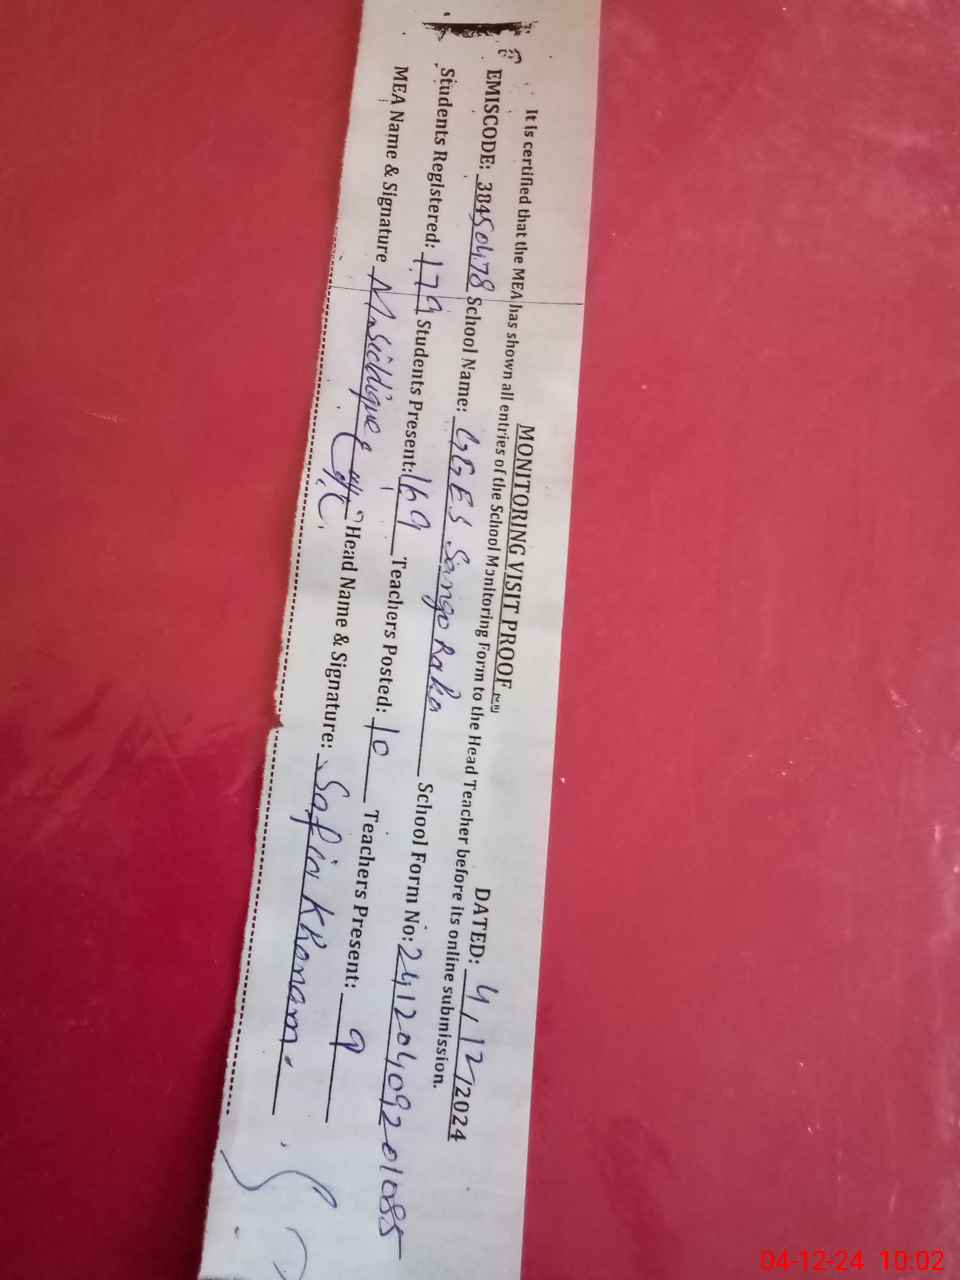 MONITORING VISIT PROOF
DATED: 4/12/2024
It is certified that the MEA has shown all entries of the School Monitoring Form to the Head Teacher before its online submission.
EMISCODE: 38450478 School Name: GGES Sango Raka School Form No: 24120409201085
Students Registered: 179 Students Present: 169 Teachers Posted: 10 Teachers Present: 9
MEA Name & Signature M. Siddique Head Name & Signature: Safia Khanam.
04-12-24 10:02